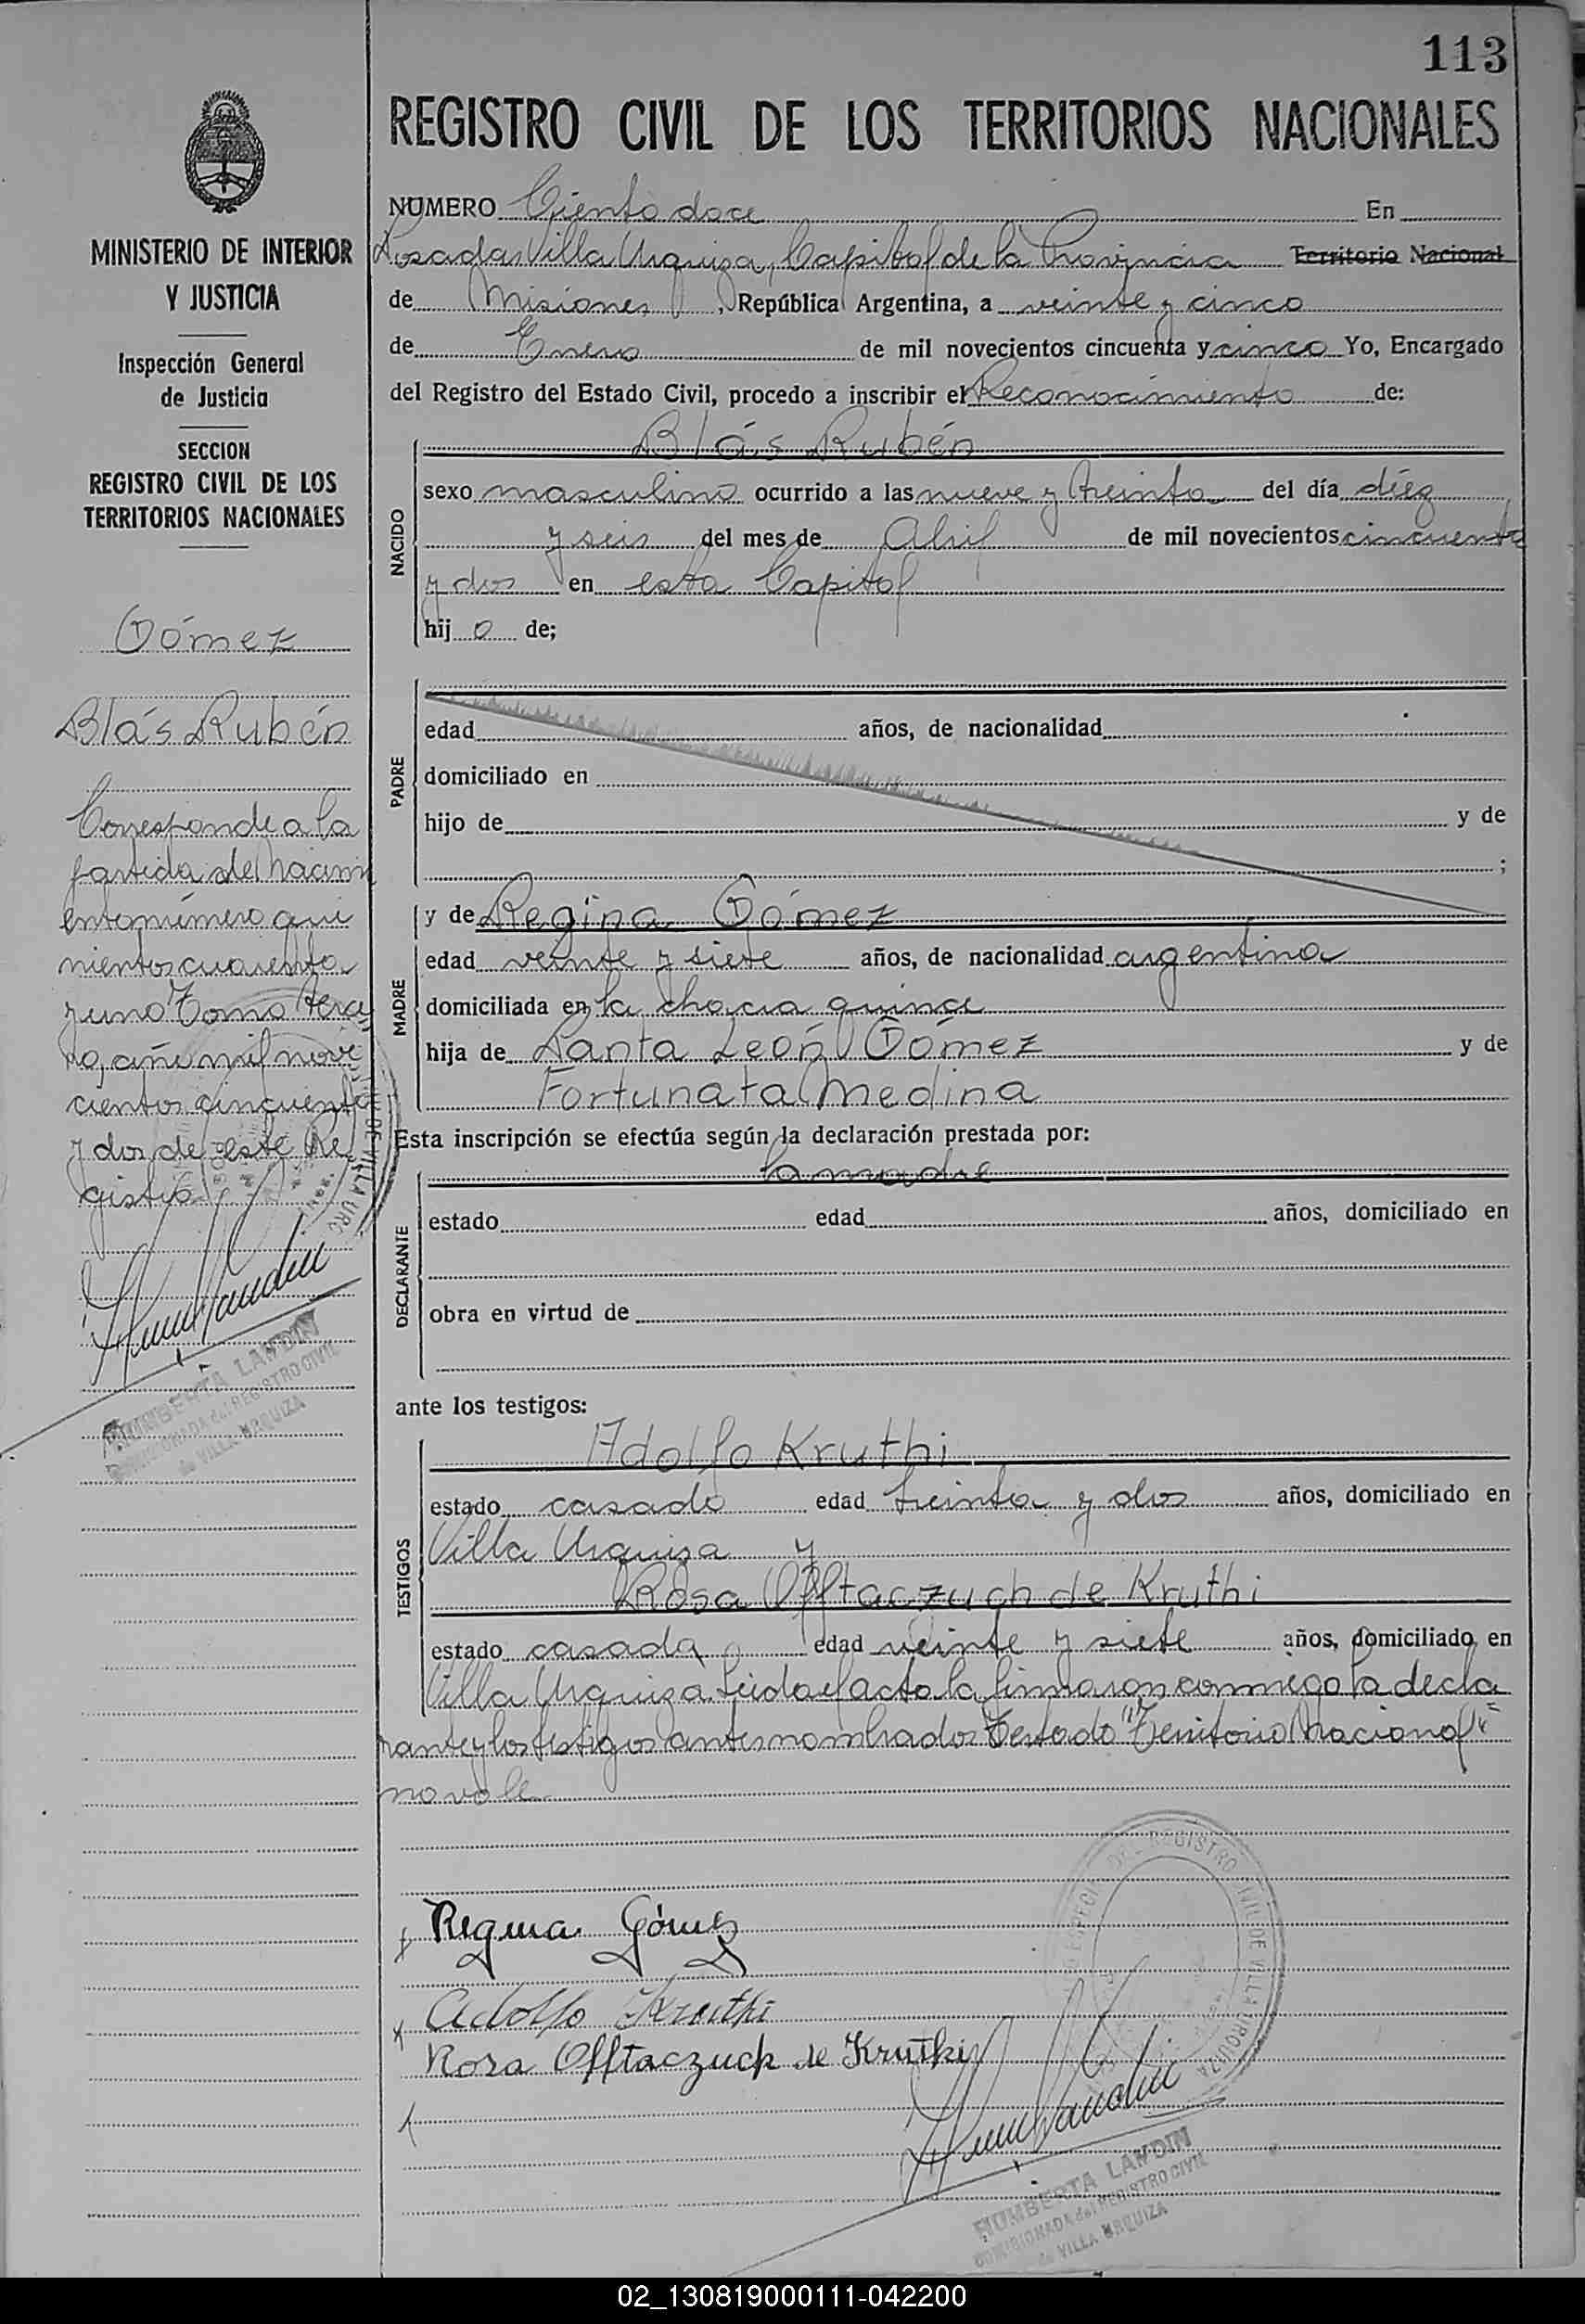 113
REGISTRO CIVIL DE LOS TERRITORIOS NACIONALES
MINISTERIO DE INTERIOR
Y JUSTICIA
Inspección General
de Justicia
SECCION
REGISTRO CIVIL DE LOS
TERRITORIOS NACIONALES
Gómez
Blás Rubén
Corresponde a la
partida de nacimi
ento número qui
nientos cuarenta
y uno Tomo terce
ro, año mil nove
cientos cincuenta
y dos de este Re
gistro
HUMBERTA LANDIN
COMISIONADA del REGISTRO CIVIL
de VILLA URQUIZA
NUMERO Ciento doce En
Posadas Villa Urquiza, Capital de la Provincia Territorio Nacional
de Misiones, República Argentina, a veinte y cinco
de Enero de mil novecientos cincuenta y cinco Yo, Encargado
del Registro del Estado Civil, procedo a inscribir el Reconocimiento de:
NACIDO
Blás Rubén
sexo masculino ocurrido a las nueve y treinta del día diez
y seis del mes de Abril de mil novecientos cincuenta
y dos en esta Capital
hij o de;
PADRE
edad años, de nacionalidad
domiciliado en
hijo de y de
;
MADRE
y de Regina Gómez
edad veinte y siete años, de nacionalidad argentina
domiciliada en la chacra quince
hija de Santa León Gómez y de
Fortunata Medina
Esta inscripción se efectúa según la declaración prestada por:
DECLARANTE
la madre
estado edad años, domiciliado en
obra en virtud de
ante los testigos:
TESTIGOS
Adolfo Kruthi
estado casado edad treinta y dos años, domiciliado en
Villa Urquiza y
Rosa Offtaczuch de Kruthi
estado casada edad veinte y siete años, domiciliado en
Villa Urquiza. Leida el acta la firmaron conmigo la decla
rante y los testigos antes nombrados Testado "Territorio Nacional"
no vale
Regina Gómez
Adolfo Kruthi
Rosa Offtaczuck de Krutki
HUMBERTA LANDIN
COMISIONADA del REGISTRO CIVIL
de VILLA URQUIZA
02_130819000111-042200